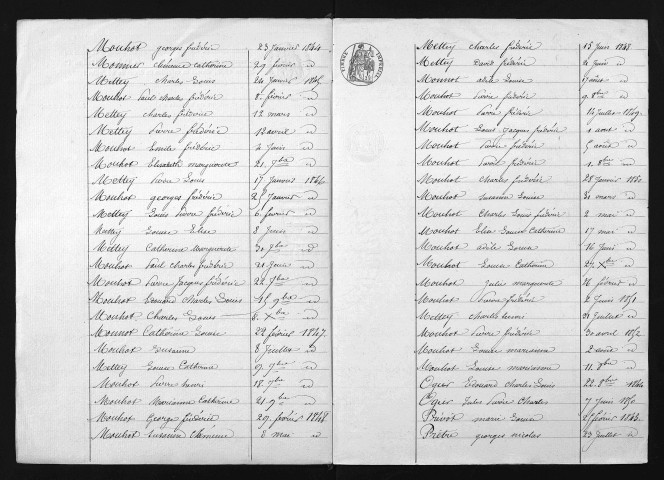 Mouhot georges frédéric 23 Janvier 1844
Monnier Clémence Catherine 29 février id
Mettey Charles Louis 24 Janvier 1845
Mouhot Paul Charles frédéric 8 février id
Mettey Charles frédéric 12 mars id
Mettey Pierre frédéric 13 avril id
Mouhot Emile frédéric 4 Juin id
Mouhot Elisabeth marguerite 21 9bre id
Mettey Pierre Louis 17 Janvier 1846
Mouhot georges frédéric 25 Janvier id
Mettey Louis Pierre frédéric 6 février id
Mettey Louise Elise 8 Juin id
Mettey Catherine Marguerite 30 9bre id
Mouhot Paul Charles frédéric 21 Juin id
Mouhot Pierre Jacques frédéric 22 9bre id
Mouhot Edouard Charles Louis 25 9bre id
Mouhot Charles Louis 8 Xbre id
Monnot Catherine Louise 22 février 1847
Mouhot Suzanne 8 Juillet id
Mettey Louise Catherine 9 9bre id
Mouhot Pierre henri 18 7bre id
Mouhot Marianne Catherine 21 9bre id
Mouhot George frédéric 29 février 1848
Mouhot Suzanne Clémence 8 mai id
Mettey Charles frédéric 15 Juin 1848
Mettey David frédéric 4 Juin id
Monnot Adèle Louise id
Mouhot Pierre frédéric 9 8bre id
Mouhot Pierre frédéric 14 Juillet 1849
Mouhot Louis Jacques frédéric 1 aout id
Mouhot Pierre frédéric 5 aout id
Mouhot Pierre frédéric 1 8bre id
Mouhot Charles frédéric 28 Janvier 1850
Mouhot Suzanne Louise 31 mars id
Mouhot Charles Louis frédéric 2 mai id
Mouhot Elise Louise Catherine 17 mai id
Mouhot Adèle Louise 16 Juin id
Mouhot Louise Catherine 24 Xbre id
Mouhot Julie marguerite 16 février id
Mouhot Pierre frédéric 2 Juin 1851
Mettey Charles henri 31 Juillet id
Mouhot Pierre frédéric 30 avril 1852
Mouhot Louise marianne 2 aout id
Mouhot Louise marianne 11 8bre id
Ogier Edouard Charles Louis 22 8bre 1844
Ogier Jules Pierre Charles 7 Juin 1850
Prévot marie Louise 21 février 1843
Prêtre georges nicolas 23 Juillet id